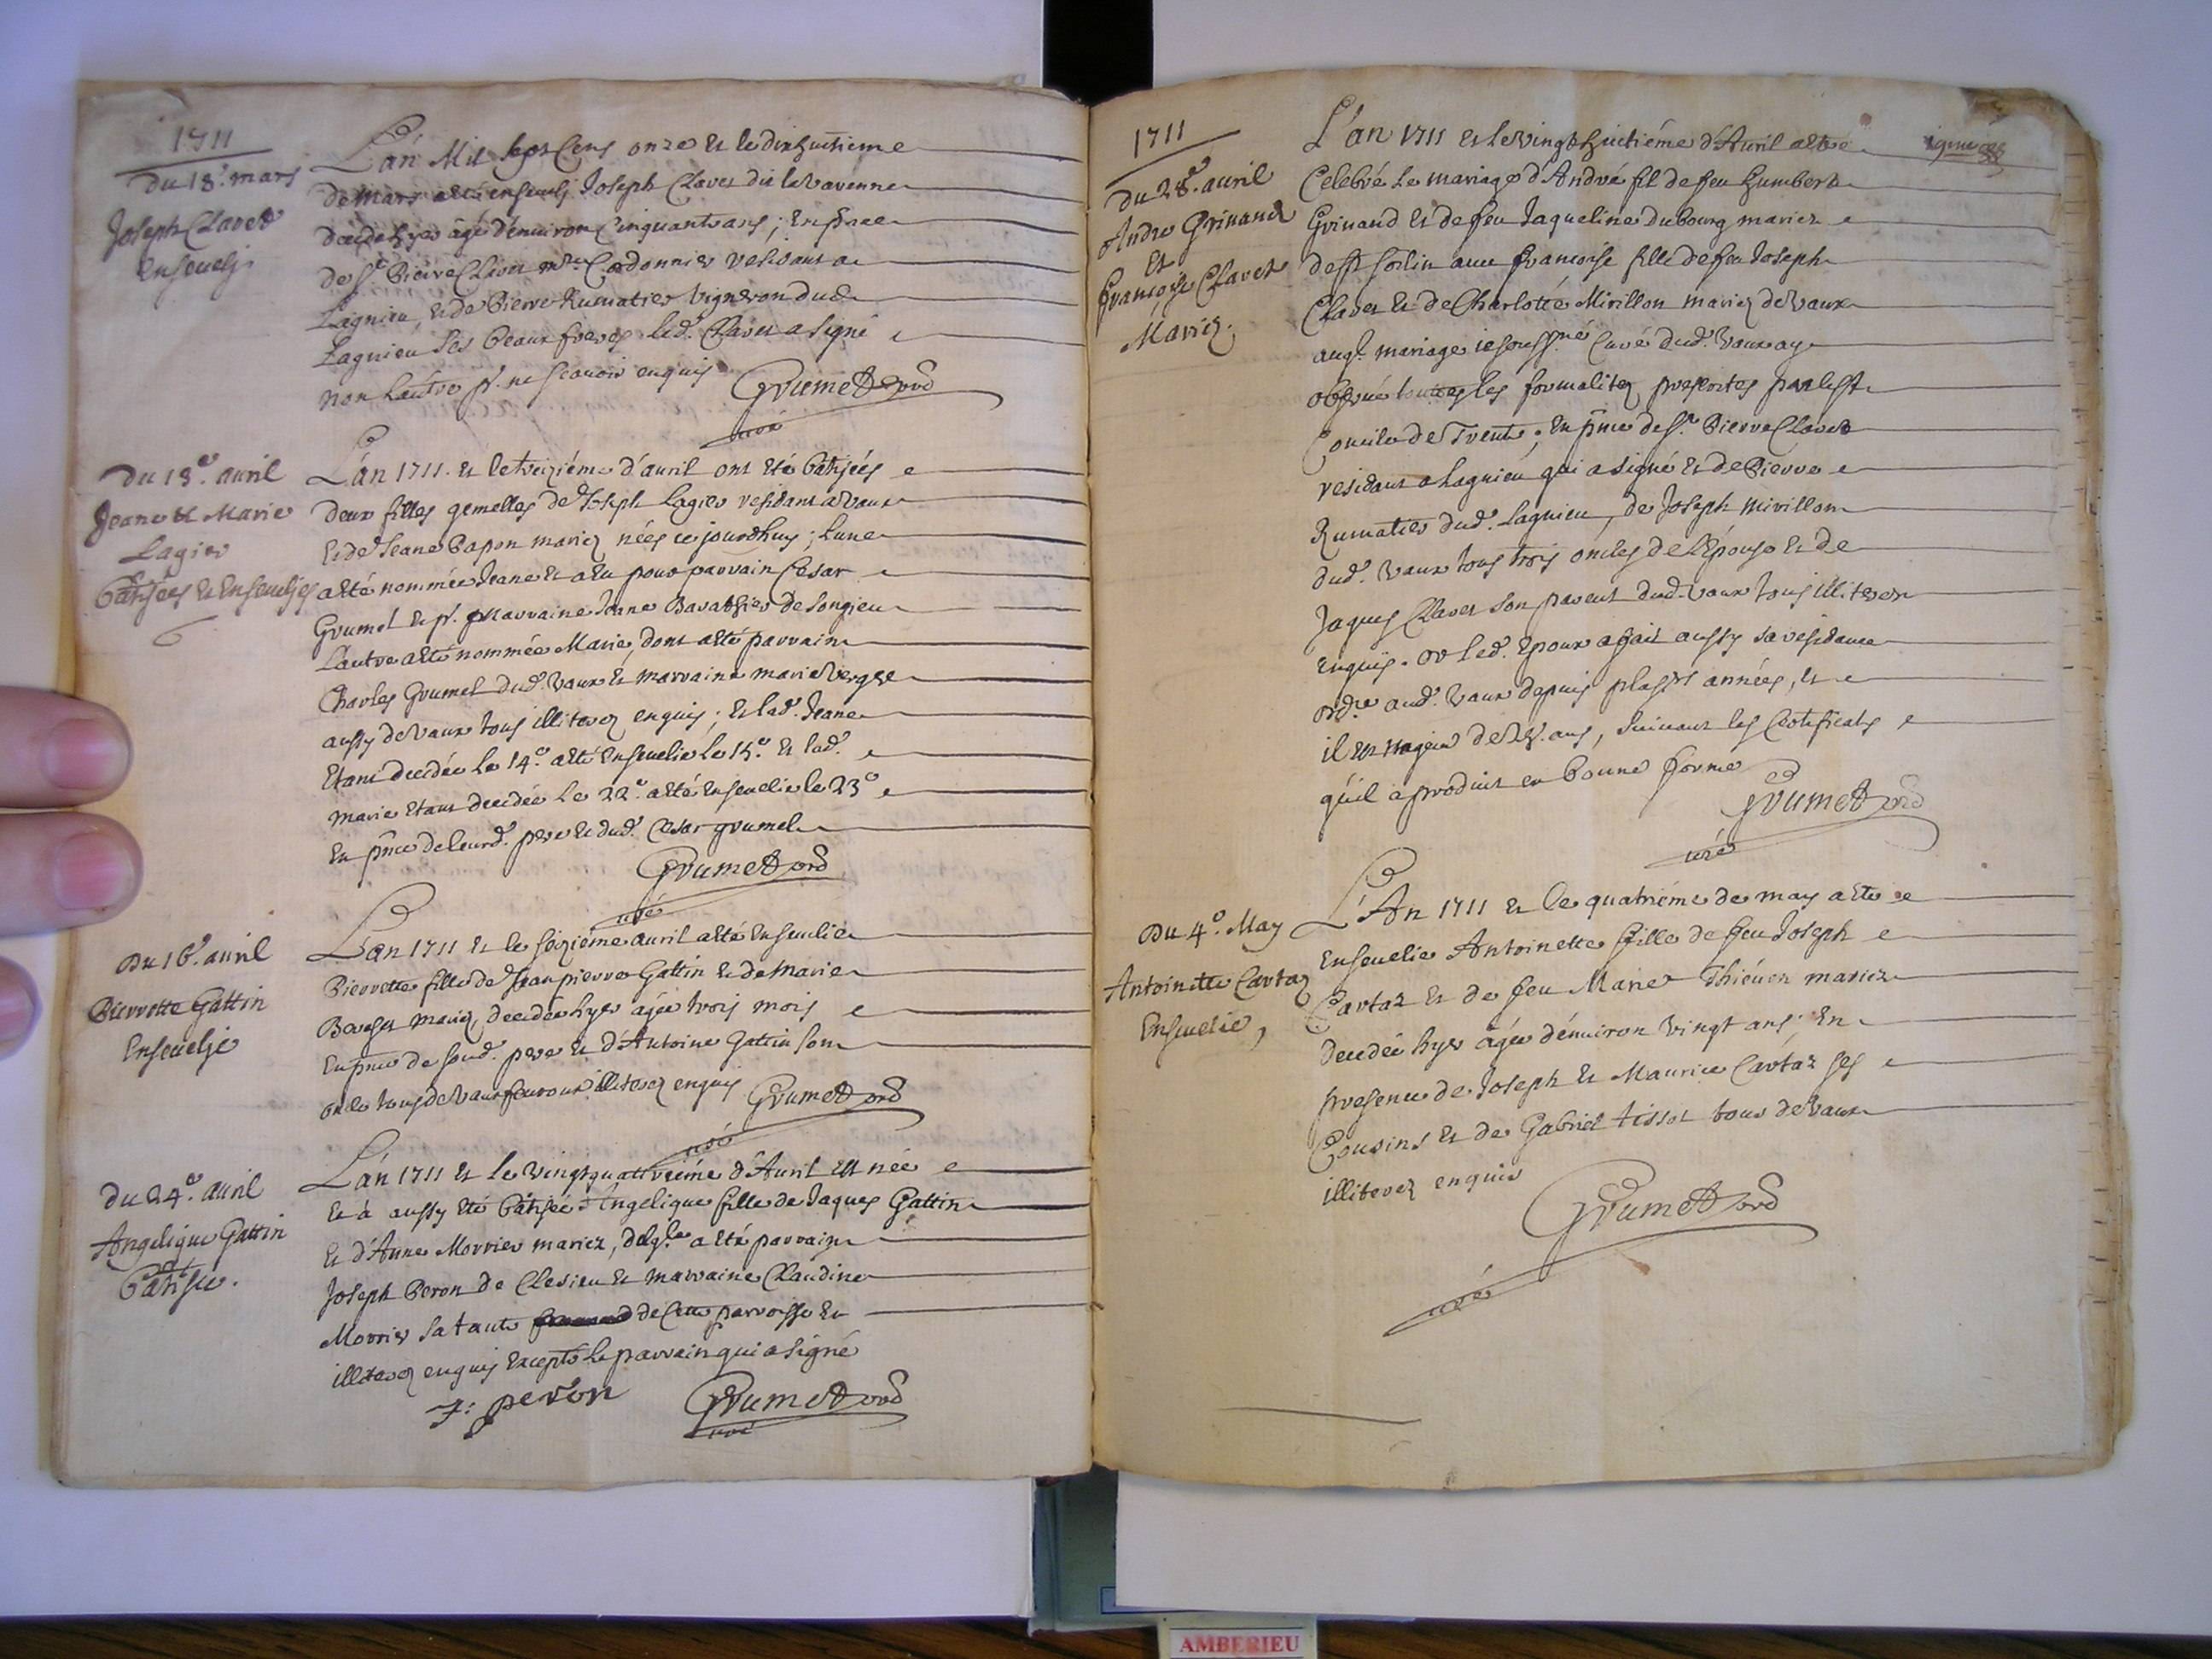 1711
Du 18e. mars
Joseph Clavet
Enseuelj
L'an Mil Sept Cens onze et le dixhuitieme
de Mars a eté enseuelj Joseph Clavet dit la Varenne
decedé hyer agé d'enuiron Cinquante ans ; En pnce
de Sr. Pierre Clavet mre Cordonnier residant a
Lagnieu, et de Pierre Rumatier vigneron dud.
Lagnieu ses beaux freres led. Clavet a signé
non l'autre pr. ne scauoir enquis
Grumet ord
curé
Du 13e. auril
Jeane et Marie
Lagier
batisées et Enseuelies
L'an 1711. et le treiziéme d'auril ont eté batisées
deux filles gemelles de Joseph Lagier residant a Vaux
et de Jeane Papon mariez nées ce jourdhuy ; l'une
a eté nommée Jeane et a eu pour parrain Cesar
Grumel et pr. marraine Jeane Barathier de Songieu
L'autre a eté nommée Marie, dont a eté parrain
Charles Grumel dud. Vaux et marraine marie Verger
aussy de Vaux tous illiterez enquis ; et lad. Jeane
etant decedée le 14e. a eté Enseuelie le 15e. et lad.
marie etant decedée le 22e. a eté Enseuelie le 23e
En pnce de leurd. pere et dud. Cesar grumel
Grumet ord
curé
Du 16e. auril
Pierrette Gattin
Enseuelje
L'an 1711 et le seiziéme auril a eté Enseuelie
Pierrette fille de Jean pierre Gattin et de Marie
mariez, decedée hyer agée trois mois
En pnce de sond. pere et d'Antoine Gattin son
oncle tous de Vaux illiterez enquis
Grumet ord
curé
Du 24e. auril
Angelique Gattin
batisée.
L'an 1711 et le vingtquattriéme d'Auril est née
et a aussy eté batisée Angelique fille de Jaques Gattin
et d'Anne Morrier mariez, de lqle a eté parrain
Joseph Peron de Clesieu et marraine Claudine
Morrier sa tante de cette parroisse
illiterez enquis Excepté le parrain qui a signé
J: peron
Grumet ord
curé
1711
Du 28e. auril
Andre Grinand
Et
Françoise Clavet
Mariez.
L'an 1711 et le vingt huitiéme d'Auril a eté
Celebré le mariage d'André fil de feu humbert
Grinand et de feu Jaqueline Dubourg mariez
de St Sorlin auec Françoise fille de feu Joseph
Clavet et de Charlotte Mirillon mariez de Vaux
auql. mariage ie soussné Curé dud. Vaux ay
obserué toutes les formalitez prescrites par le St
Concile de Trente ; En pnce de Sr. Pierre Clavet
residant a Lagnieu qui a signé et de Pierre
Rumatier dud. Lagnieu, de Joseph mirillon
dud. Vaux tous trois oncles de l'Epouse et de
Jaques Clavet son parent dud. Vaux tous illiterez
enquis. Or led. Epoux a fait aussy sa residance
ordre aud. Vaux depuis plussrs années, et
il est majeur de ans, suiuant les Certificats
qu'il a produit en bonne forme
Grumet ord
curé
Du 4e. May
Antoinette Cartaz
Enseuelie,
L'An 1711 et le quatriéme de may a eté
Enseuelie Antoinette fille de feu Joseph
Cartaz et de feu Marie Thiéuen mariez
decedée hyer agée d'enuiron vingt ans ; En
presence de Joseph et Maurice Cartaz ses
Cousins et de Gabriel tissot tous de Vaux
illiterez enquis
Grumet ord
curé
AMBERIEU